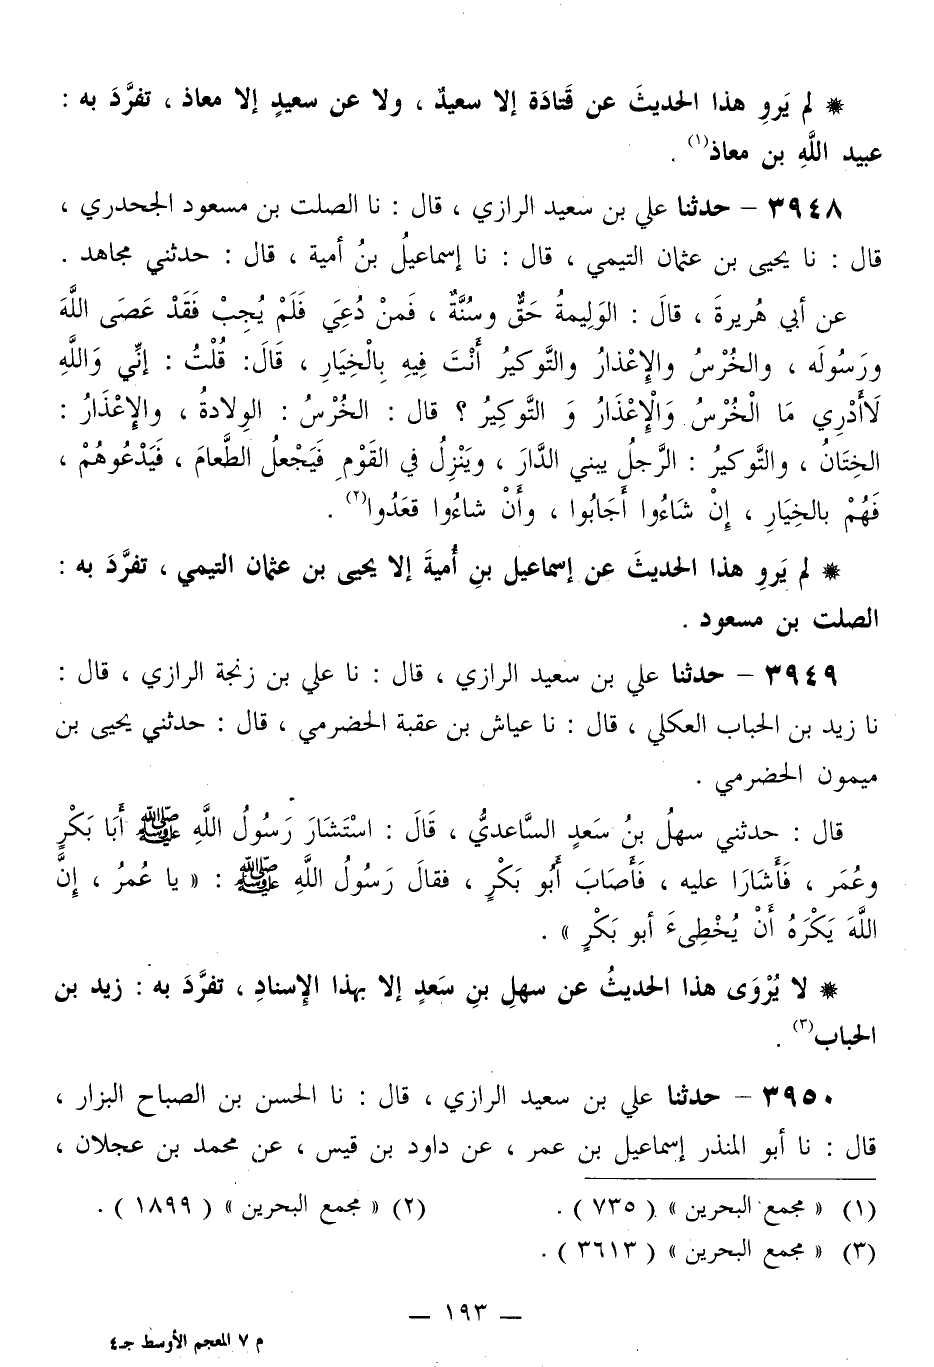 * لم يَروِ هذا الحديثَ عن قَتادَة إلا سعيدٌ ، ولا عن سعيدٍ إلا معاذ ، تفرَّدَ به :
عبيد اللَّهِ بن معاذ(١) .
٣٩٤٨ – حدثنا علي بن سعيد الرازي ، قال : نا الصلت بن مسعود الجحدري ،
قال : نا يحيى بن عثمان التيمي ، قال : نا إسماعيلُ بنُ أمية ، قال : حدثني مجاهد .
عن أبي هُريرةَ ، قالَ : الوَلِيمةُ حَقٌّ وسُنَّةٌ ، فَمنْ دُعِيَ فَلَمْ يُجِبْ فَقَدْ عَصَى اللَّهَ
ورَسُولَه ، والخُرْسُ والإِعْذارُ والتَّوكيرُ أَنْتَ فِيهِ بِالْخِيَارِ ، قَالَ: قُلْتُ : إنِّي وَاللَّهِ
لَاأَدْرِي مَا الْخُرْسُ وَالْإِعْذَارُ وَ التَّوكِيرُ ؟ قال : الخُرْسُ : الوِلادةُ ، والإِعْذَارُ :
الخِتَانُ ، والتَّوكيرُ : الرَّجلُ يبني الدَّارَ ، ويَنْزِلُ في القَوْمِ فَيَجْعلُ الطَّعامَ ، فَيَدْعُوهُمْ ،
فَهُمْ بالخِيَارِ ، إِنْ شَاءُوا أَجَابُوا ، وأَنْ شاءُوا قعَدُوا(٢) .
* لم يَروِ هذا الحديثَ عن إسماعيل بنِ أُميةَ إلا يحيى بن عثمان التيمي ، تفرَّدَ به :
الصلت بن مسعود .
٣٩٤٩ – حدثنا علي بن سعيد الرازي ، قال : نا علي بن زنجة الرازي ، قال :
نا زيد بن الحباب العكلي ، قال : نا عياش بن عقبة الحضرمي ، قال : حدثني يحيى بن
ميمون الحضرمي .
قال : حدثني سهلُ بنُ سَعدٍ السَّاعديُّ ، قَالَ : اسْتَشَارَ رَسُولُ اللَّهِ ﷺ أَبَا بَكْرٍ
وعُمَر ، فَأَشَارَا عليه ، فَأَصَابَ أَبُو بَكْرٍ ، فقالَ رَسُولُ اللَّهِ ﷺ : « يا عُمرُ ، إِنَّ
اللَّهَ يَكْرَهُ أَنْ يُخْطِىءَ أبو بَكْرٍ » .
* لا يُرْوَى هذا الحديثُ عن سهلِ بنِ سَعدٍ إلا بهذا الإِسنادِ ، تفرَّدَ به : زيد بن
الحباب(٣) .
٣٩٥٠ – حدثنا علي بن سعيد الرازي ، قال : نا الحسن بن الصباح البزار ،
قال : نا أبو المنذر إسماعيل بن عمر ، عن داود بن قيس ، عن محمد بن عجلان ،
(١) « مجمع البحرين » ( ٧٣٥ ) . (٢) « مجمع البحرين » ( ١٨٩٩ ) .
(٣) « مجمع البحرين » ( ٣٦١٣ ) .
— ١٩٣ —
م ٧ المعجم الأوسط جـ٤